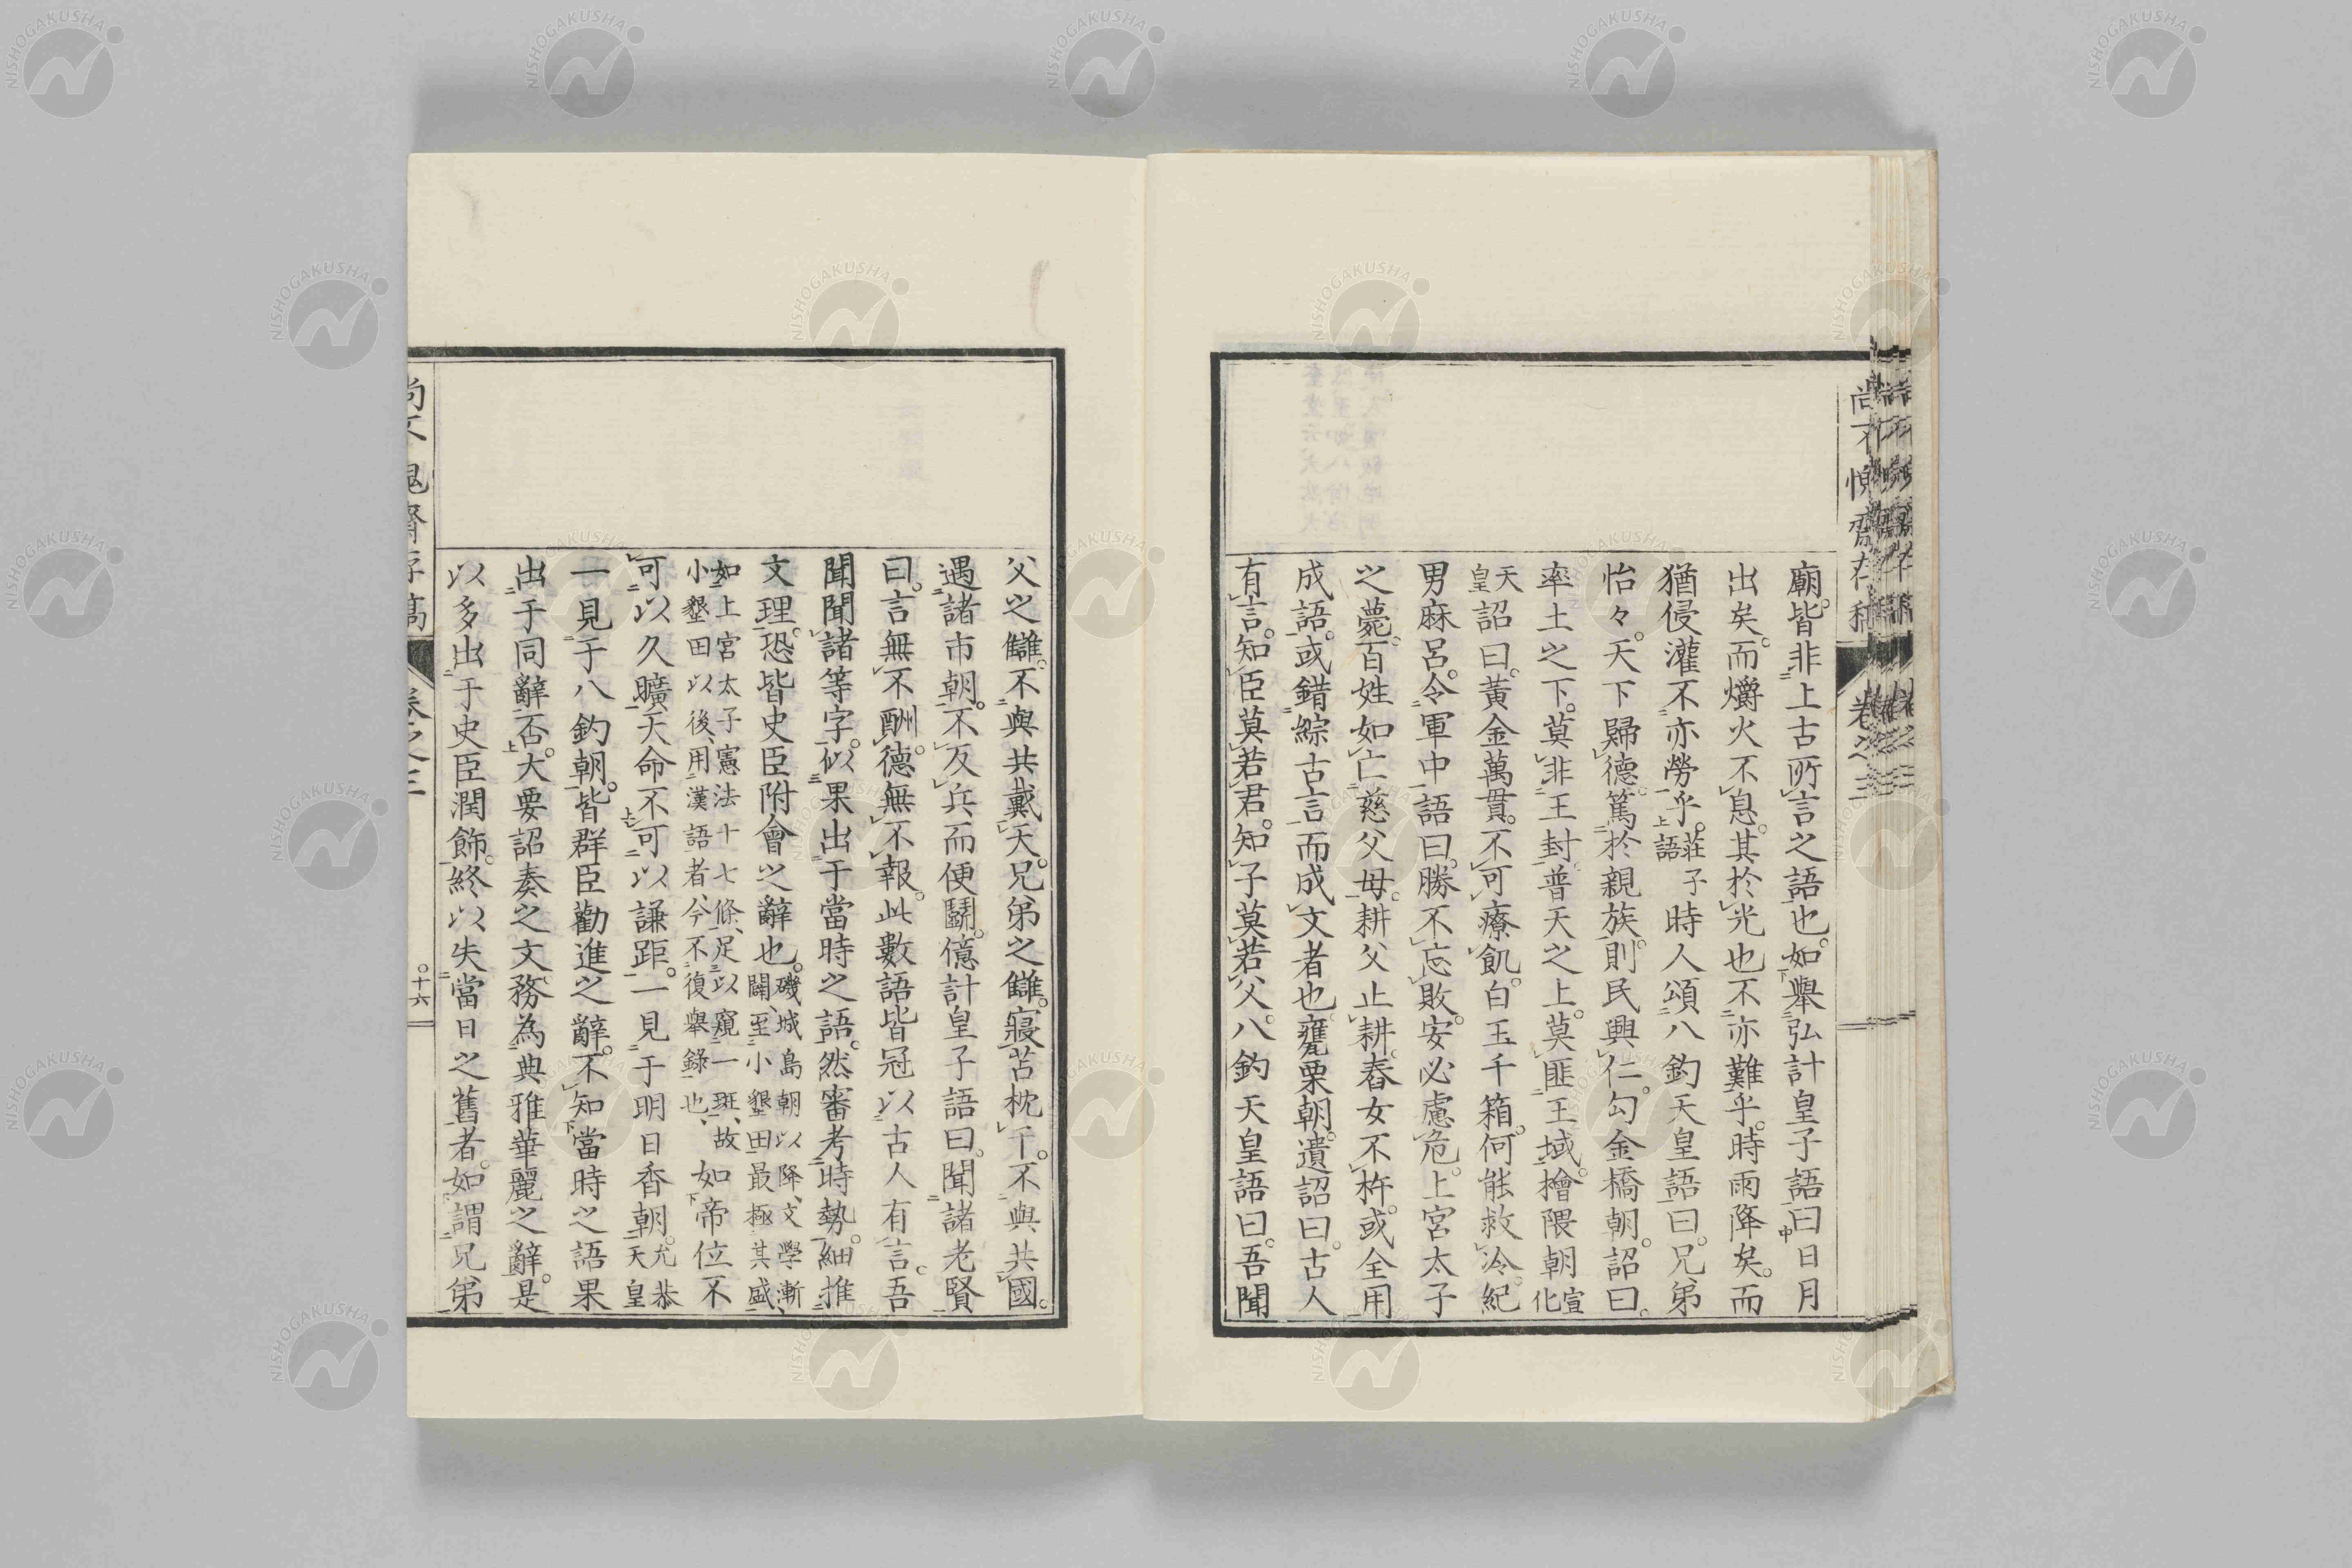 廟。皆非上古所言之語也。如舉弘計皇子語曰日月
出矣。而爝火不息。其於光也不亦難乎。時雨降矣。而
猶侵灌不亦勞乎。莊子語時人頌八釣天皇語曰。兄弟
怡々。天下歸德。篤於親族。則民興仁。勾金橋朝。詔曰。
率土之下。莫非王封。普天之上。莫匪王域。檜隈朝宣化
天皇詔曰。黃金萬貫。不可療飢。白玉千箱。何能救冷。紀
男麻呂。令軍中語曰。勝不忘敗。安必慮危。上宮太子
之薨。百姓如亡慈父母。耕父止耕。舂女不杵。或全用
成語。或錯綜古言而成文者也。甕栗朝。遺詔曰。古人
有言。知臣莫若君。知子莫若父。八釣天皇語曰。吾聞
尚不愧齋存稿 卷之三
父之讎。不與共戴天。兄弟之讎。寢苫枕干。不與共國。
遇諸市朝。不反兵而便鬪。億計皇子語曰。聞諸老賢
曰。言無不酬。德無不報。此數語皆冠以古人有言。吾
聞聞諸等字。似果出于當時之語。然審考時勢。細推
文理。恐皆史臣附會之辭也。磯城島朝以降、文學漸闢、至小墾田最極其盛、
如上宮太子憲法十七條、足以窺一斑、故小墾田以後、用漢語者、今不復舉錄也、如帝位不
可以久曠天命不可以謙距。一見于明日香朝。允恭天皇
一見于八釣朝。皆群臣勸進之辭。不知當時之語果
出于同辭否。大要詔奏之文務為典雅華麗之辭。是
以多出于史臣潤飾。終以失當日之舊者。如謂兄弟
尚不愧齋存稿 卷之三 ○十六
NISHOGAKUSHA